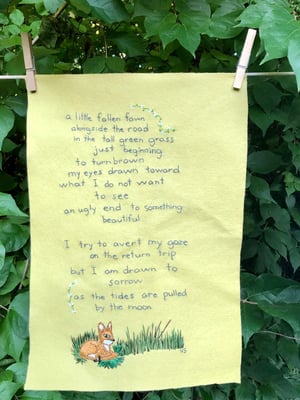 a little fallen fawn
alongside the road
in the tall green grass
just beginning
to turn brown
my eyes drawn toward
what I do not want
to see
an ugly end to something
beautiful
I try to avert my gaze
on the return trip
but I am drawn to
sorrow
as the tides are pulled
by the moon